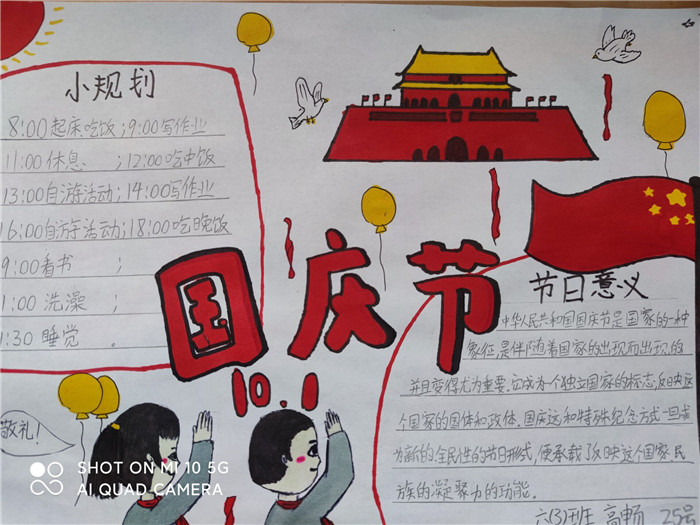 小规划
8:00起床吃饭;9:00写作业
11:00休息 ;12:00吃中饭
13:00自游活动;14:00写作业
16:00自游活动;18:00吃晚饭
9:00看书 ;
1:00洗澡 ;
1:30睡觉 .
国庆节
10.1
敬礼!
节日意义
中华人民共和国国庆节是国家的一种
象征,是伴随着国家的出现而出现的
并且变得尤为重要.它成为一个独立国家的标志,反映这
个国家的国体和政体.国庆这和特殊纪念方式一旦成
为新的全民性的节日形式,便承载了反映这个国家,民
族的凝聚力的功能.
六(3)班 高畅 25号
SHOT ON MI 10 5G
AI QUAD CAMERA